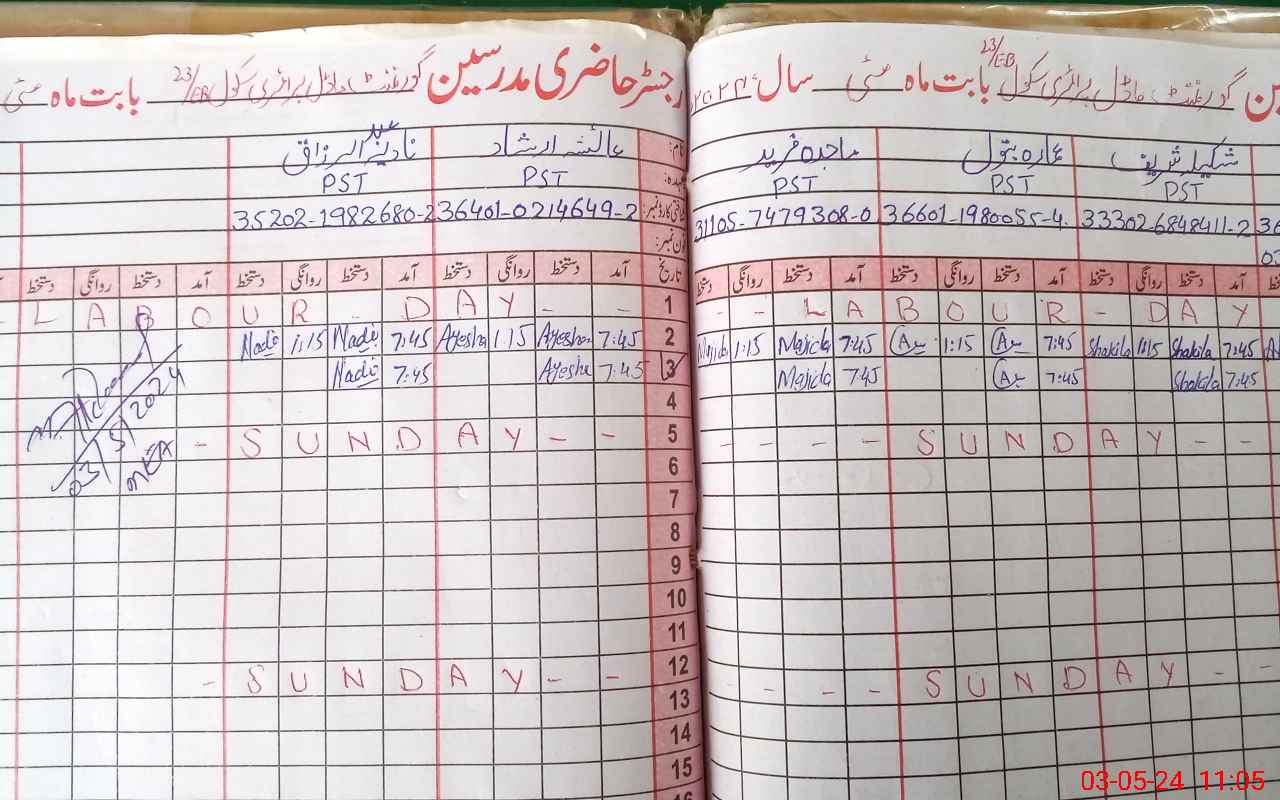 رجسٹر حاضری مدرسین گورنمنٹ ماڈل پرائمری سکول 23/EB بابت ماہ مئی
نام: عائشہ ارشاد نادیہ عبدالرزاق
عہدہ: PST PST
شناختی کارڈ نمبر: 36401-0214649-2 35202-1982680-2
فون نمبر:
تاریخ آمد دستخط روانگی دستخط آمد دستخط روانگی دستخط آمد دستخط روانگی دستخط
1 - L A B O U R - D A Y - -
2 7:45 Ayesha 1:15 Ayesha 7:45 Nadi 1:15 Nadi
3 7:45 Ayesha 7:45 Nadi
4
5 - S U N D A Y - -
6
7
8
9
10
11
12 - S U N D A Y - -
13
14
15
03/5/2024
MEA
ین گورنمنٹ ماڈل پرائمری سکول 23/EB بابت ماہ مئی سال ۲۰۲۴ء
شکیلہ شریف عمارہ بتول ماجدہ فرید
PST PST PST
33302-6848411-2 36601-1980055-4 31105-7479308-0
آمد دستخط روانگی دستخط آمد دستخط روانگی دستخط آمد دستخط روانگی دستخط
- - L A B O U R - D A Y
7:45 Shakila 1:15 Shakila 7:45 1:15 7:45 Majida 1:15 Majida
7:45 Shakila 7:45 7:45 Majida
- - - - S U N D A Y - -
- - - - S U N D A Y -
03-05-24 11:05